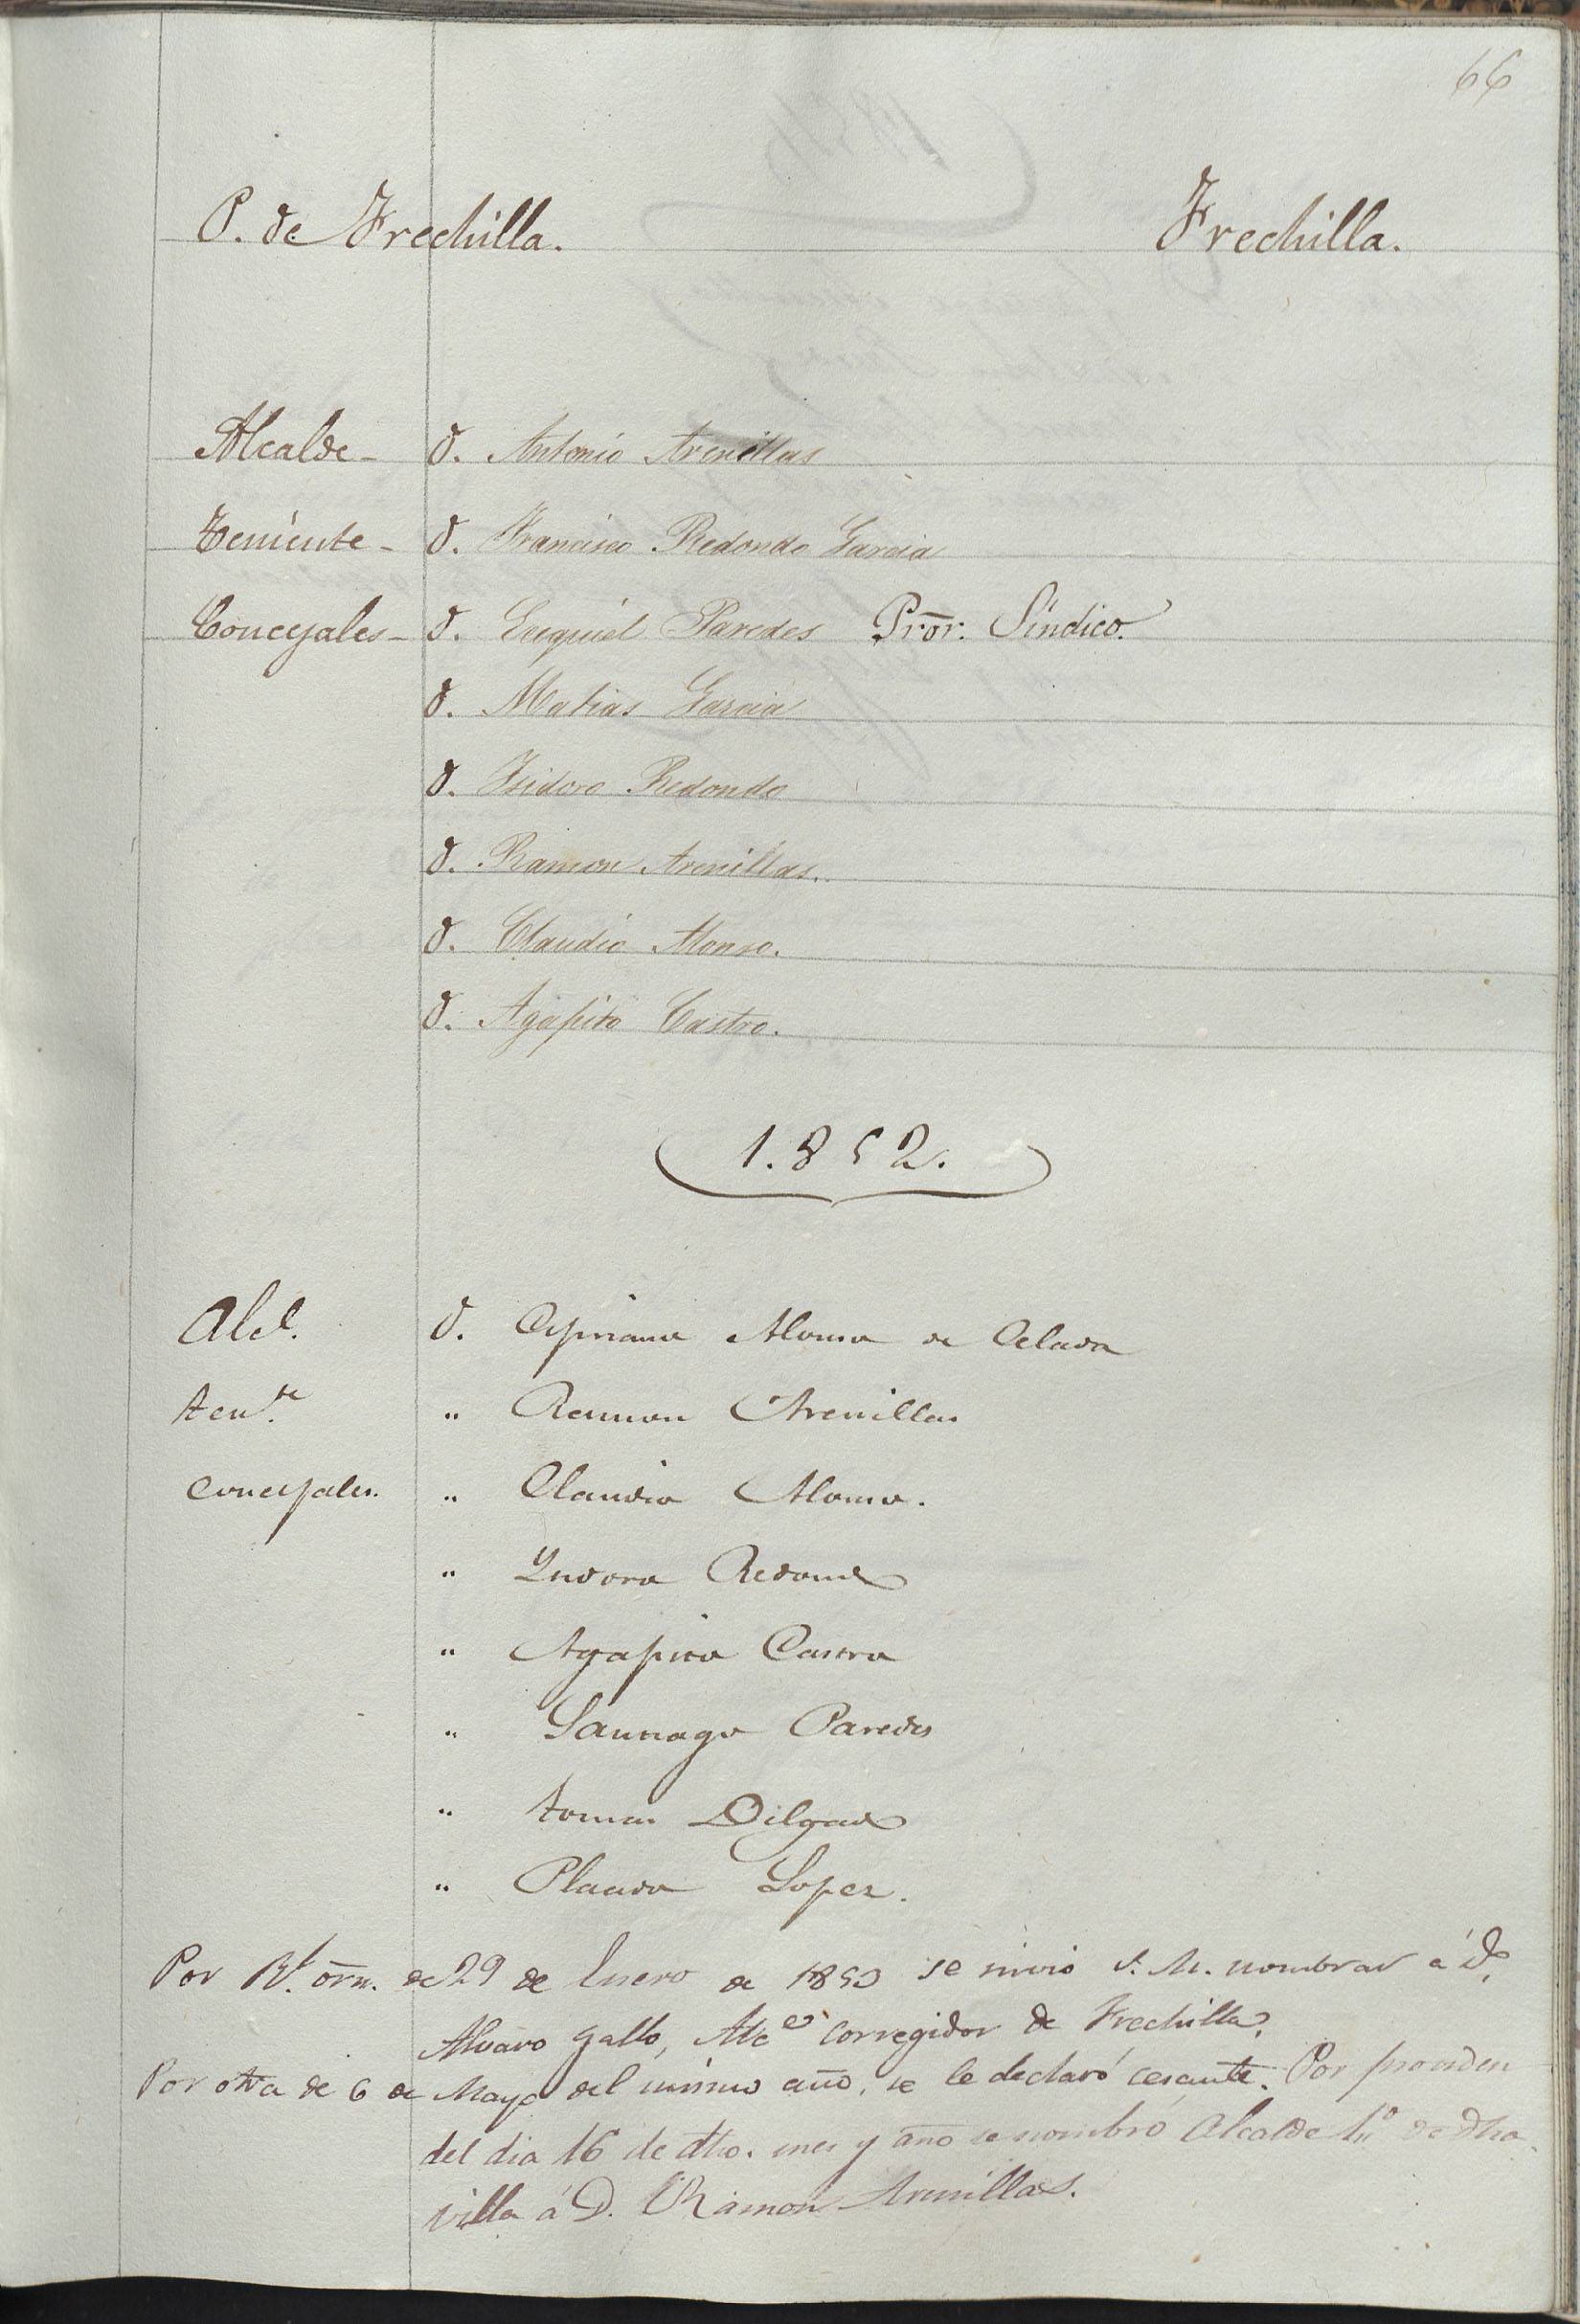 66
P. de Frechilla. Frechilla.
Alcalde - D. Antonio Arenillas
Teniente - D. Francisco Redondo Garcia
Concejales - D. Ezequiel Paredes Pror. Síndico.
D. Matias Garcia
D. Isidoro Redondo
D. Ramon Arenillas.
D. Claudio Alonso.
D. Agapito Castro.
1.852.
Alcl. D. Cipriano Alonso de Celada
Tente. " Ramon Arenillas
Concejales. " Claudio Alonso.
" Ysidoro Redondo
" Agapito Castro
" Santiago Paredes
" Tomas Delgado
" Placido Lopez.
Por Rl. orn. de 29 de Enero de 1853 se sirvió S. M. nombrar á D.
Alvaro Gallo, Alce corregidor de Frechilla.
Por otra de 6 de Mayo del mismo año, se le declaró cesante. Por providen
del dia 16 de dho. mes y año se nombró Alcalde 1º de dha.
villa á D. Ramon Arenillas.